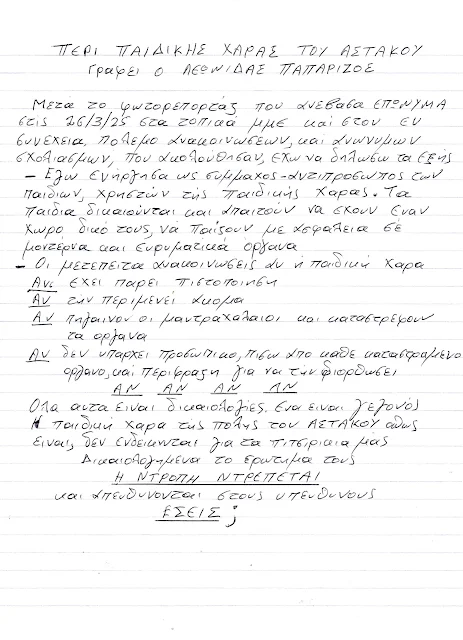 ΠΕΡΙ ΠΑΙΔΙΚΗΣ ΧΑΡΑΣ ΤΟΥ ΑΣΤΑΚΟΥ
Γραφει ο ΛΕΩΝΙΔΑΣ ΠΑΠΑΡΙΖΟΣ
Μετα το φωτορεπορτάζ που ανεβασα ΕΠΩΝΥΜΑ
στις 26/3/25 στα τοπικά μμε και στον εν
συνεχεια, πολεμο ανακοινωσεων, και ανωνυμων
σχολιασμων, που ακολουθησαν, εχω να δηλωσω τα εξής
- Εγω ενηργησα ως συμμαχος-αντιπροσωπος των
παιδιων, χρηστών της παιδικής χαρας. Τα
παιδια δικαιούνται και απαιτούν να εχουν έναν
χωρο δικό τους, να παίξουν με ασφαλεια σε
μοντερνα και ευρυματικα οργανα
- Οι μετεπειτα ανακοινωσεις αν ή παιδική χαρα
Αν εχει παρει πιστοποιηση
Αν την περιμενεί ακομα
Αν πηγαινον οι μαντραχαλαιοι και καταστρεφουν
τα οργανα
Αν δεν υπαρχει προσωπικο, πισω απο καθε κατασταμενο
οργανο, και περιφραξη για να την διορθωσει
ΑΝ ΑΝ ΑΝ ΑΝ
Ολα αυτα ειναι δικαιολογίες. Ενα ειναι γεγονός
Η παιδικη χαρα της πολης του ΑΣΤΑΚΟΥ όπως
ειναι, δεν ενδεικνται για τα πιτσιρικια μας
Δικαιολογημενα το ερωτημα τους
Η ΝΤΡΟΠΗ ΝΤΡΕΠΕΤΑΙ
και απευθυνονται στους υπευθυνους
ΕΣΕΙΣ ;